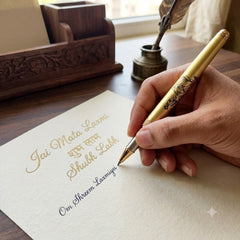 Jai Mata Laxmi
शुभ लाभ
Shubh Labh
Om Shreem Laxmiya